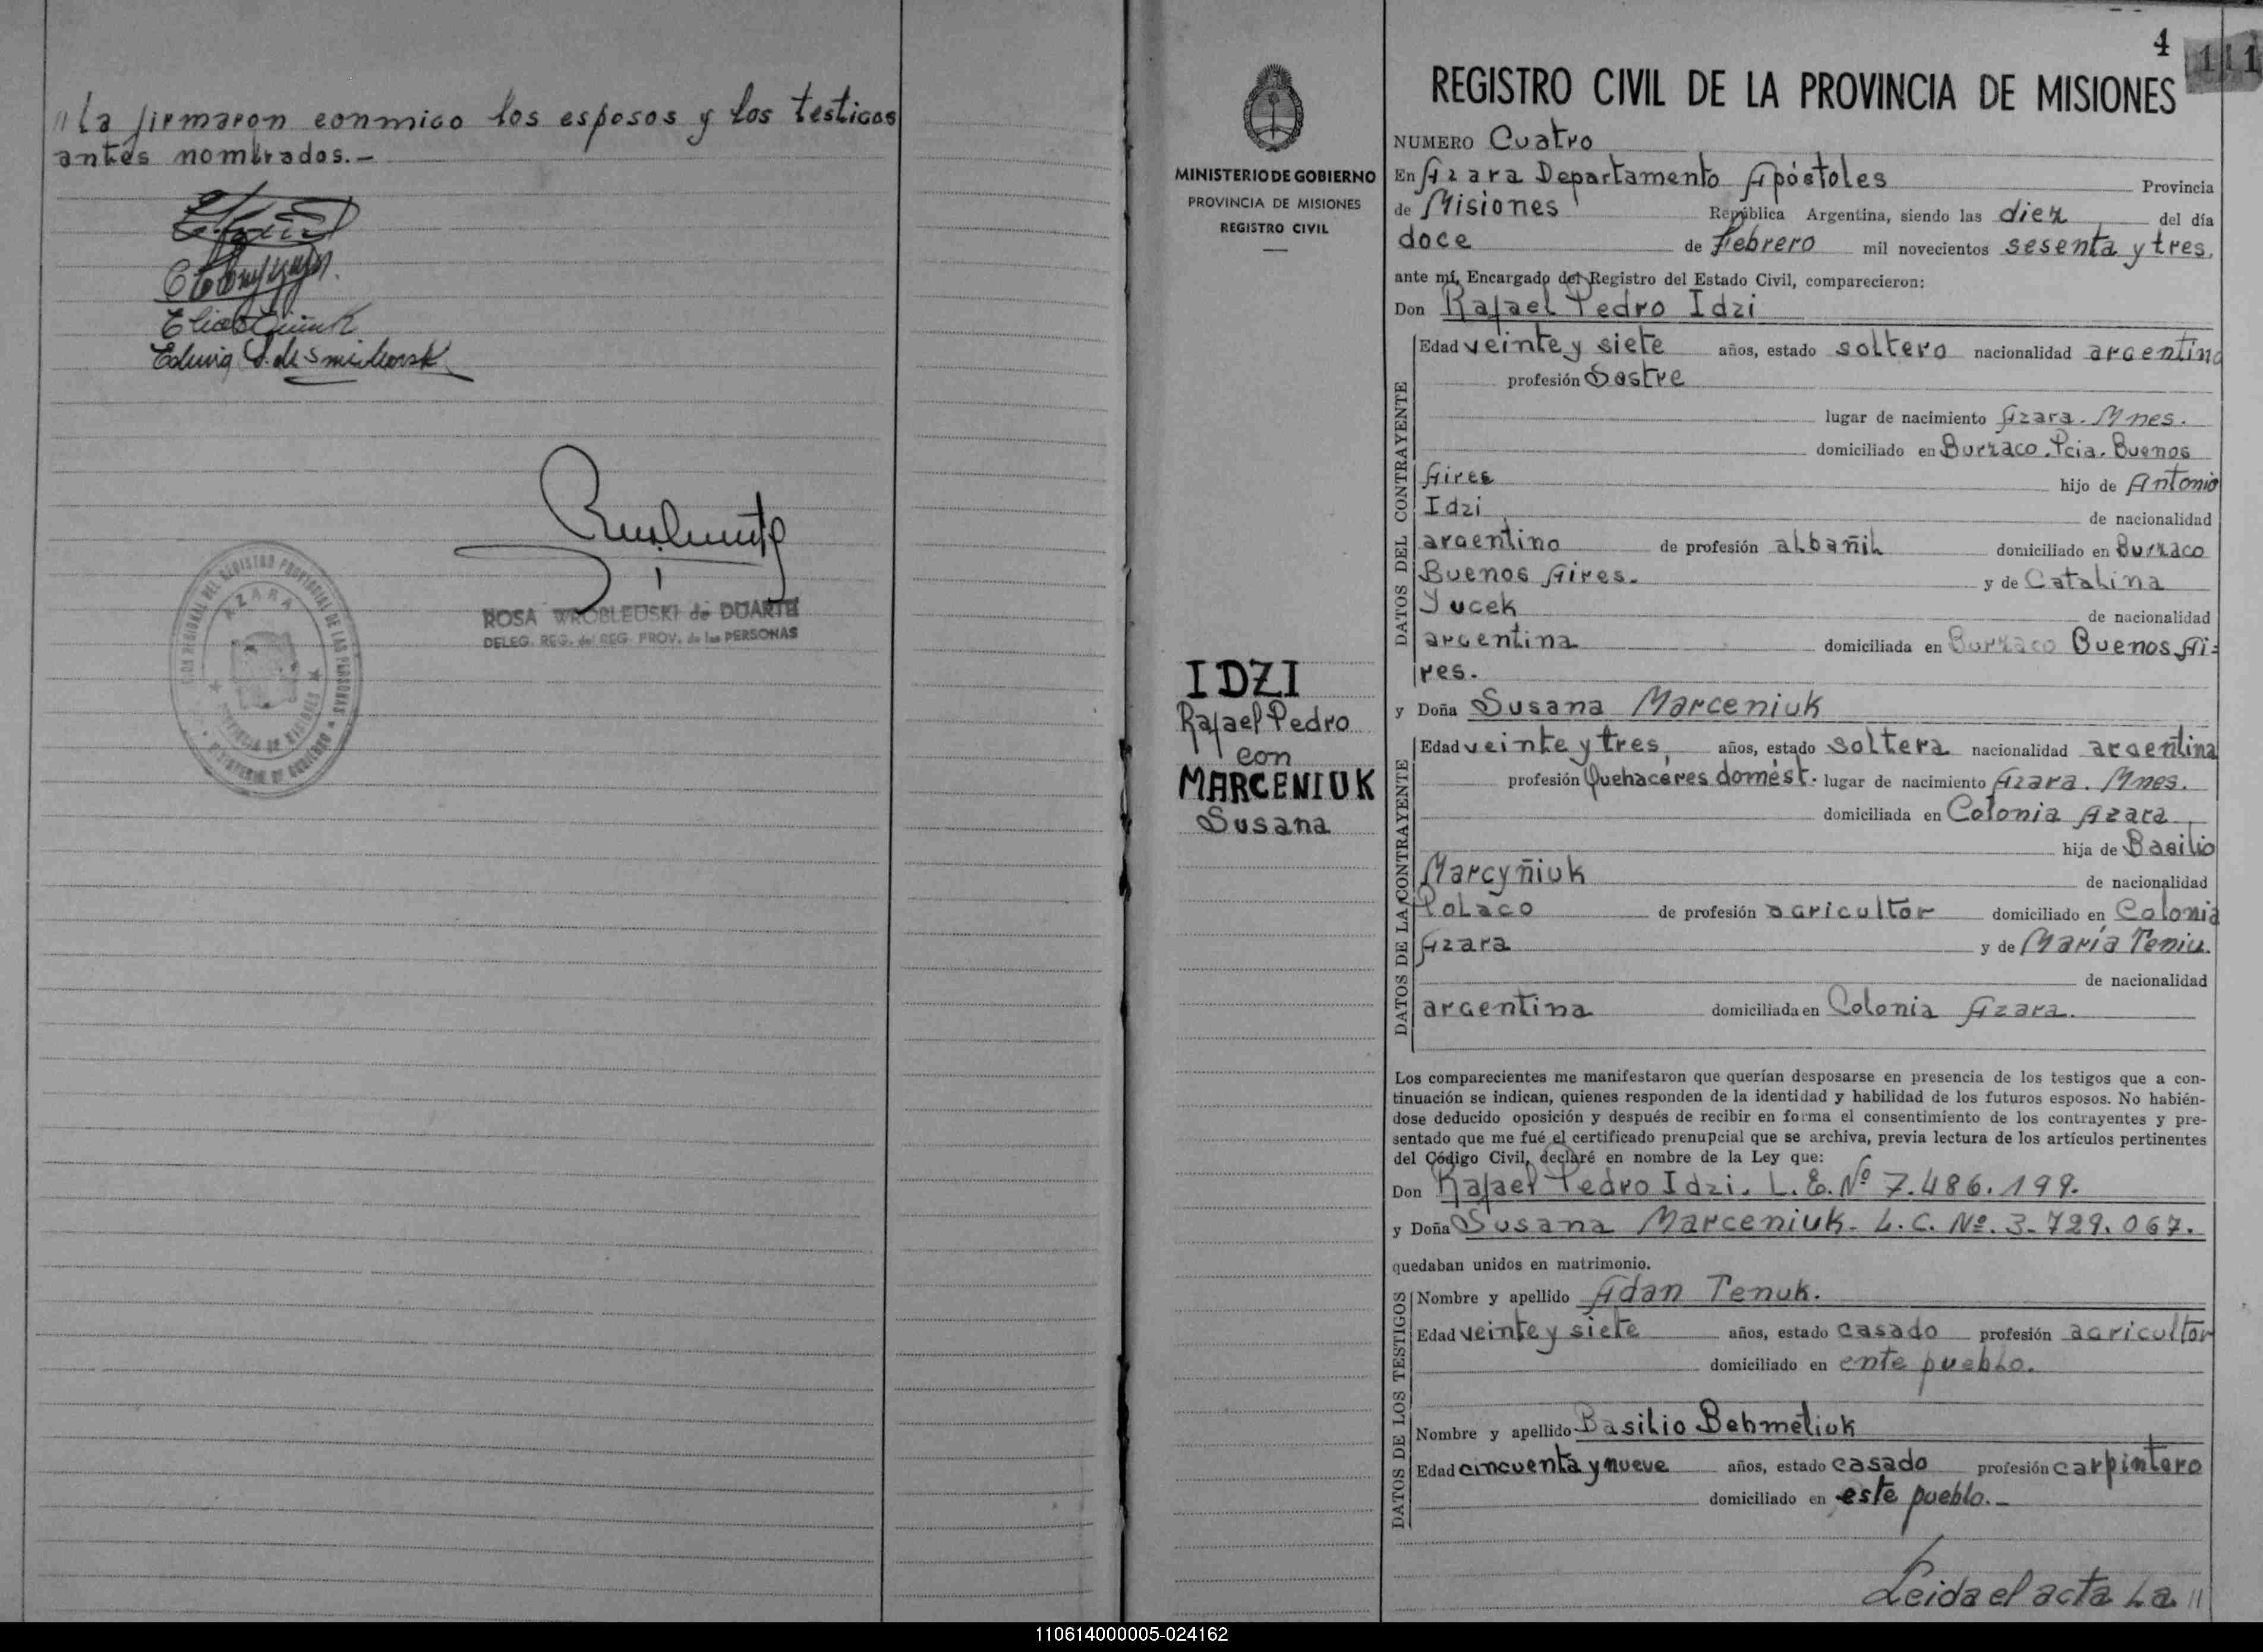 " La firmaron conmigo los esposos y los testigos
antes nombrados.-
Edwig
ROSA WROBLEUSKI de DUARTE
DELEG. REG. del REG. PROV. de las PERSONAS
AZARA
4
111
MINISTERIO DE GOBIERNO
PROVINCIA DE MISIONES
REGISTRO CIVIL
IDZI
Rafael Pedro
con
MARCENIUK
Susana
REGISTRO CIVIL DE LA PROVINCIA DE MISIONES
NUMERO Cuatro
En Azara Departamento Apóstoles Provincia
de Misiones República Argentina, siendo las diez del día
doce de Febrero mil novecientos sesenta y tres.
ante mí, Encargado del Registro del Estado Civil, comparecieron:
Don Rafael Pedro Idzi
DATOS DEL CONTRAYENTE
Edad veinte y siete años, estado soltero nacionalidad argentino
profesión Sastre
lugar de nacimiento Azara. Mnes.
domiciliado en Burzaco. Pcia. Buenos
Aires hijo de Antonio
Idzi de nacionalidad
argentino de profesión albañil domiciliado en Burzaco
Buenos Aires. y de Catalina
Yucek de nacionalidad
argentina domiciliada en Burzaco Buenos Ai=
res.
y Doña Susana Marceniuk
DATOS DE LA CONTRAYENTE
Edad veinte y tres años, estado soltera nacionalidad argentina
profesión Quehaceres domést. lugar de nacimiento Azara. Mnes.
domiciliada en Colonia Azara
hija de Basilio
Marcyñiuk de nacionalidad
Polaco de profesión agricultor domiciliado en Colonia
Azara y de María Teniu.
de nacionalidad
argentina domiciliada en Colonia Azara.
Los comparecientes me manifestaron que querían desposarse en presencia de los testigos que a con-
tinuación se indican, quienes responden de la identidad y habilidad de los futuros esposos. No habién-
dose deducido oposición y después de recibir en forma el consentimiento de los contrayentes y pre-
sentado que me fué el certificado prenupcial que se archiva, previa lectura de los artículos pertinentes
del Código Civil, declaré en nombre de la Ley que:
Don Rafael Pedro Idzi. L. E. Nº 7.486.199.
y Doña Susana Marceniuk- L. C. Nº. 3-729.067.
quedaban unidos en matrimonio.
DATOS DE LOS TESTIGOS
Nombre y apellido Adan Tenuk.
Edad veinte y siete años, estado casado profesión agricultor
domiciliado en ente pueblo.
Nombre y apellido Basilio Behmetiuk
Edad cincuenta y nueve años, estado casado profesión carpintero
domiciliado en este pueblo.-
Leida el acta La "
110614000005-024162